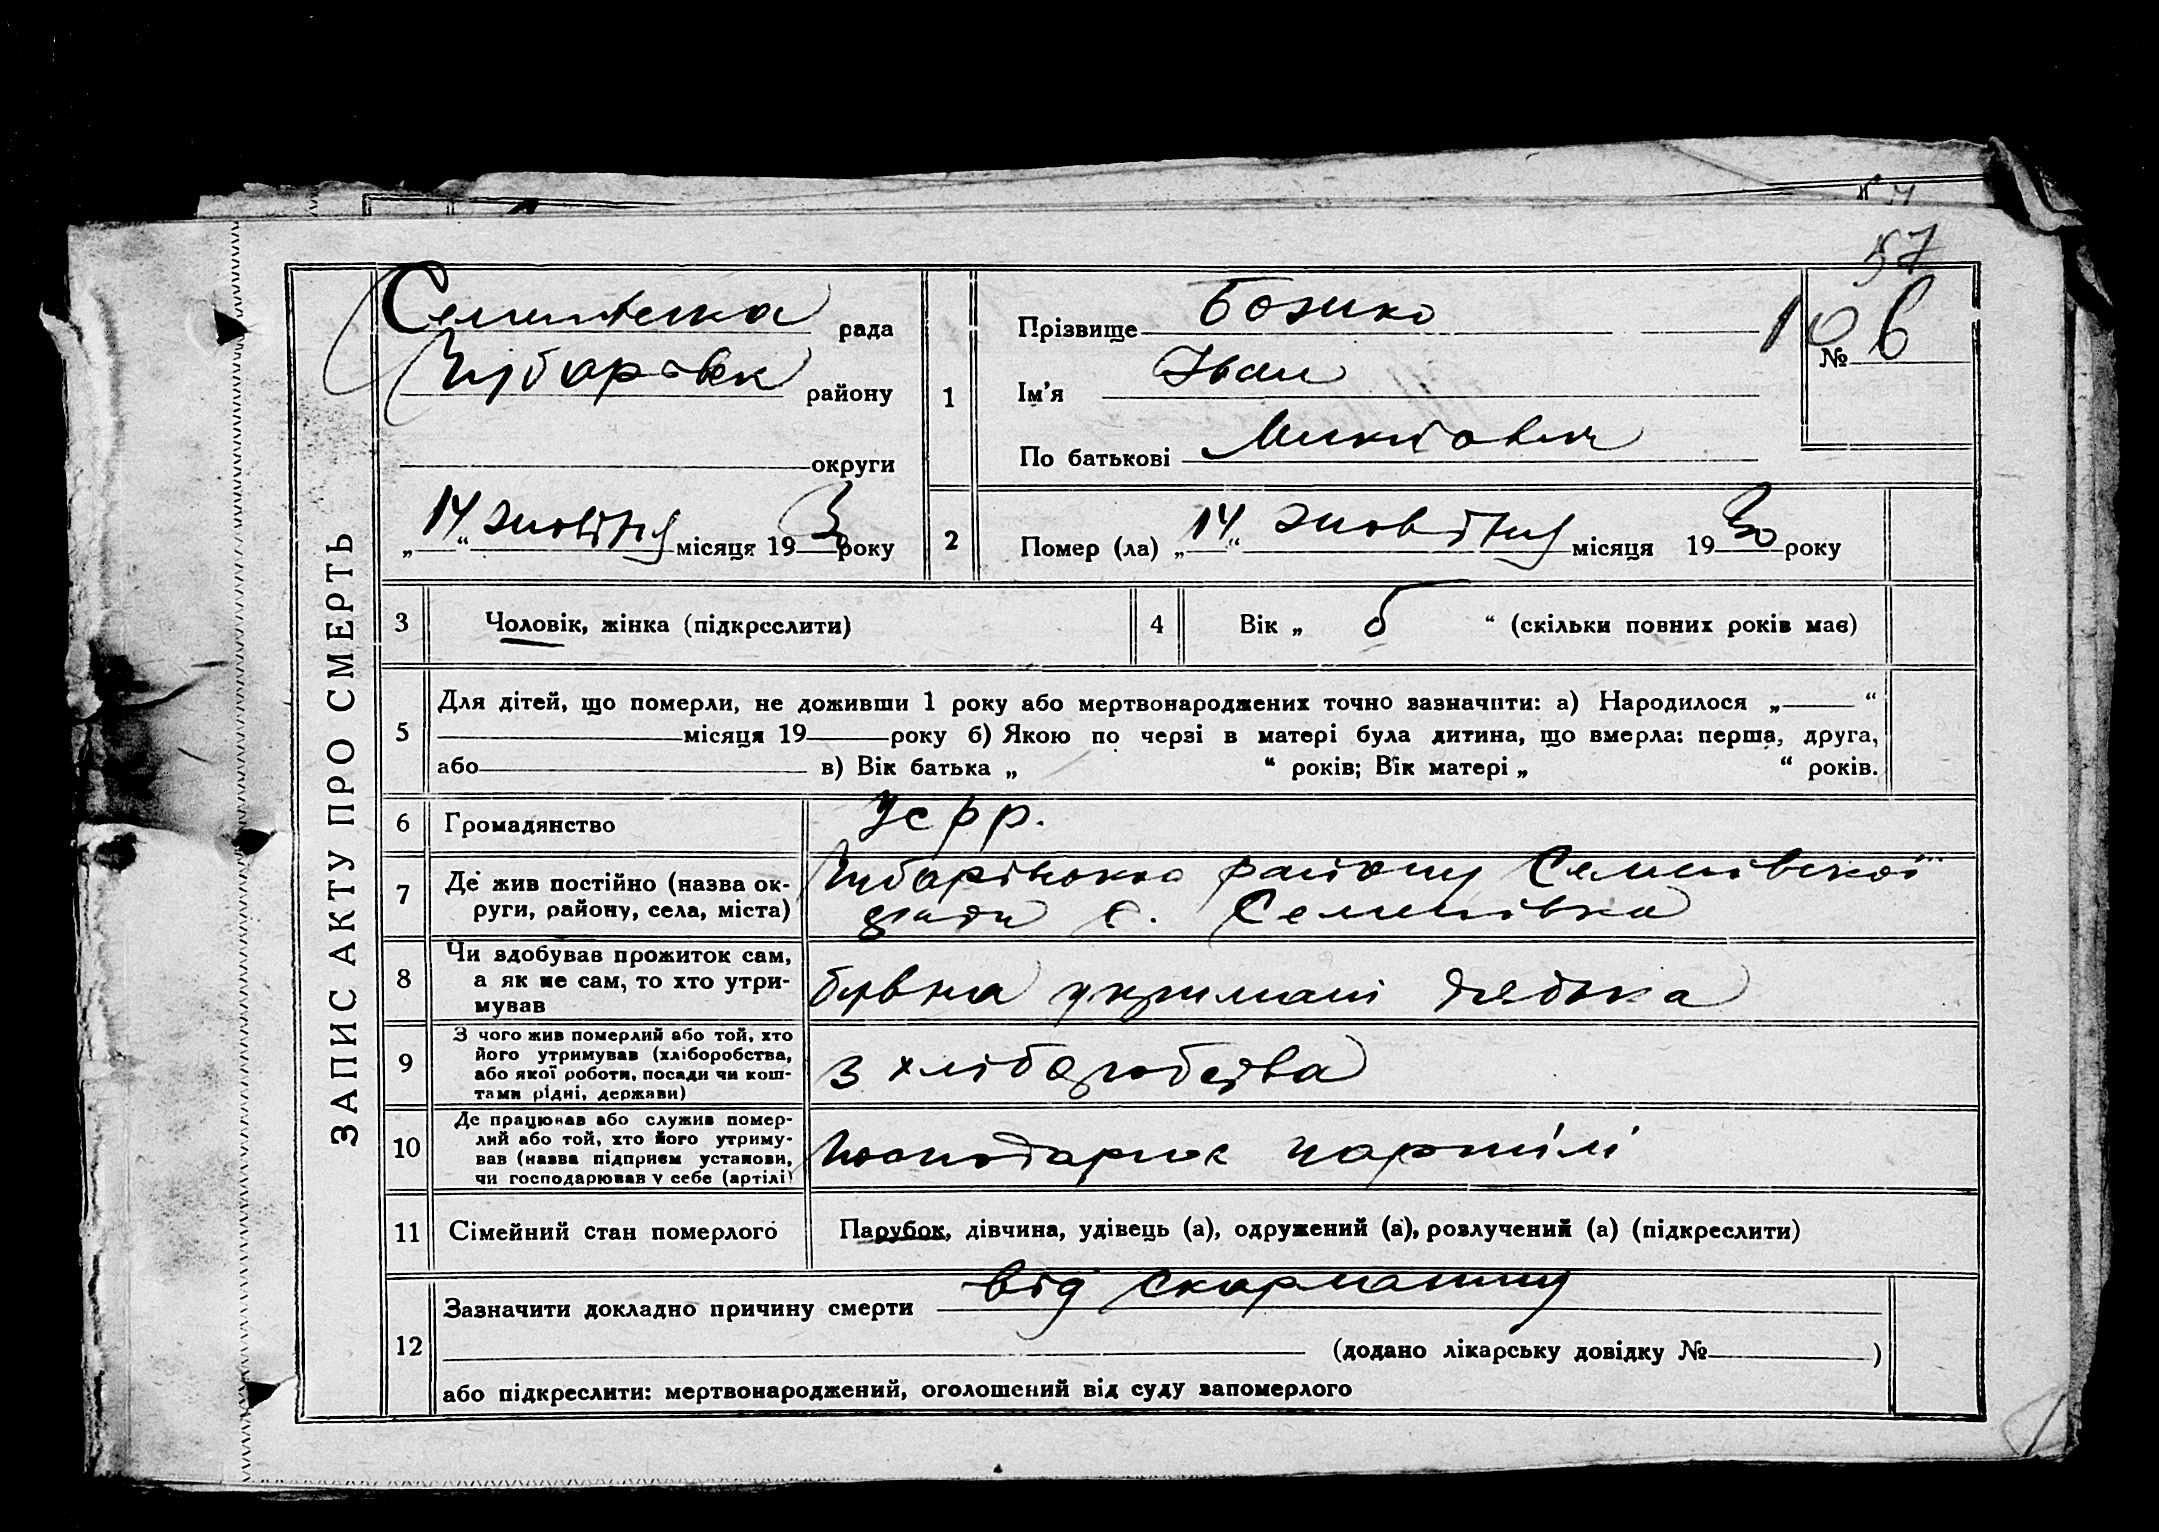 57
ЗАПИС АКТУ ПРО СМЕРТЬ
Семенівська рада
Чубарівськ району
округи
„14“ жовтня місяця 193 року
1
Прізвище Божко
Ім'я Іван
По батькові Микитович
№ 106
2
Помер (ла) „14“ жовтня місяця 1930 року
3 Чоловік, жінка (підкреслити)
4 Вік „ 6 “ (скільки повних років має)
5
Для дітей, що померли, не доживши 1 року або мертвонароджених точно зазначити: а) Народилося „ “
місяця 19 року б) Якою по черзі в матері була дитина, що вмерла: перша, друга,
або в) Вік батька „ “ років; Вік матері „ “ років.
6 Громадянство УСРР.
7 Де жив постійно (назва ок-
руги, району, села, міста)
Чубарівського району Семенівської
ради с. Семенівка
8 Чи здобував прожиток сам,
а як не сам, то хто утри-
мував
був на утримані дядька
9 З чого жив померлий або той, хто
його утримував (хліборобства,
або якої роботи, посади чи кош-
тами рідні, держави)
з хліборобства
10 Де працював або служив помер-
лий або той, хто його утриму-
вав (назва підприєм установи,
чи господарював у себе (артілі)
11 Сімейний стан померлого
Парубок, дівчина, удівець (а), одружений (а), розлучений (а) (підкреслити)
12
Зазначити докладно причину смерти від скарлатини
(додано лікарську довідку № )
або підкреслити: мертвонароджений, оголошений від суду запомерлого